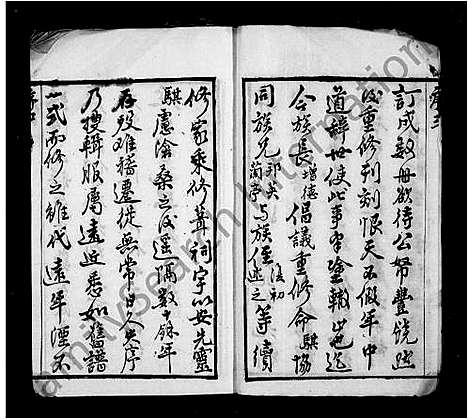 訂成數冊欲待公帑豐饒然
後重修刊刻恨天不假年中
道辭世使此事有塗轍也迄
今族長增德倡議重修命騏協
同族兄邦英蘭亭与族侄後初述之等續
修家乘修葺祠宇以安先靈
騏慮滄桑之後遥隔數十餘年
存歿难稽遷徙無常日久失序
乃搜輯服屬遠近悉如舊譜
一式而修之雖代遠年湮不
FamilySearch International